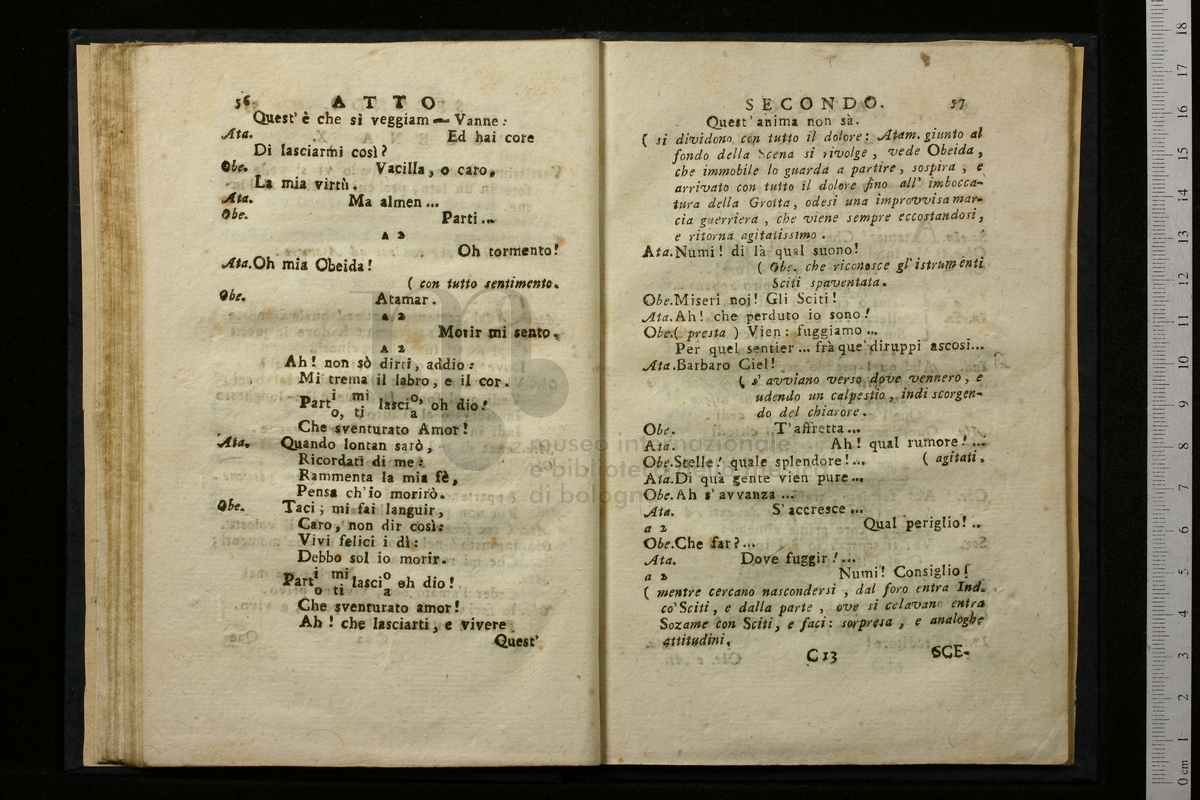 56 ATTO
Quest' è che si veggiam — Vanne:
Ata. Ed hai core
Di lasciarmi così?
Obe. Vacilla, o caro,
La mia virtù.
Ata. Ma almen ...
Obe. Parti ...
A 2
Oh tormento!
Ata. Oh mia Obeida!
( con tutto sentimento.
Obe. Atamar.
A 2
Morir mi sento.
A 2
Ah! non sò dirti, addio:
Mi trema il labro, e il cor.
Part i mi lasci o, oh dio!
o, ti a
Che sventurato Amor!
Ata. Quando lontan sarò,
Ricordati di me:
Rammenta la mia fè,
Pensa ch'io morirò.
Obe. Taci; mi fai languir,
Caro, non dir così:
Vivi felici i dì:
Debbo sol io morir.
Part i mi lasci o oh dio!
o ti a
Che sventurato amor!
Ah! che lasciarti, e vivere
Quest'
SECONDO. 57
Quest'anima non sà.
( si dividono con tutto il dolore: Atam. giunto al
fondo della Scena si rivolge, vede Obeida,
che immobile lo guarda a partire, sospira, e
arrivato con tutto il dolore fino all' imbocca-
tura della Grotta, odesi una improvvisa mar-
cia guerriera, che viene sempre eccostandosi,
e ritorna agitatissimo.
Ata. Numi! di là qual suono!
( Obe. che riconosce gl'istrumenti
Sciti spaventata.
Obe. Miseri noi! Gli Sciti!
Ata. Ah! che perduto io sono!
Obe. ( presta ) Vien: fuggiamo ...
Per quel sentier ... frà que' diruppi ascosi...
Ata. Barbaro Ciel!
( s' avviano verso dove vennero, e
udendo un calpestio, indi scorgen-
do del chiarore.
Obe. T'affretta ...
Ata. Ah! qual rumore! ...
Obe. Stelle! quale splendore!... ( agitati.
Ata. Di quà gente vien pure ...
Obe. Ah s'avvanza ...
Ata. S'accresce ...
a 2 Qual periglio! ..
Obe. Che far? ...
Ata. Dove fuggir! ...
a 2 Numi! Consiglio!
( mentre cercano nascondersi, dal foro entra Ind.
co' Sciti, e dalla parte, ove si celavano entra
Sozame con Sciti, e faci: sorpresa, e analoghe
attitudini.
C 13 SCE-
museo internazionale
e biblioteca della musica
di bologna
0 cm 1 2 3 4 5 6 7 8 9 10 11 12 13 14 15 16 17 18